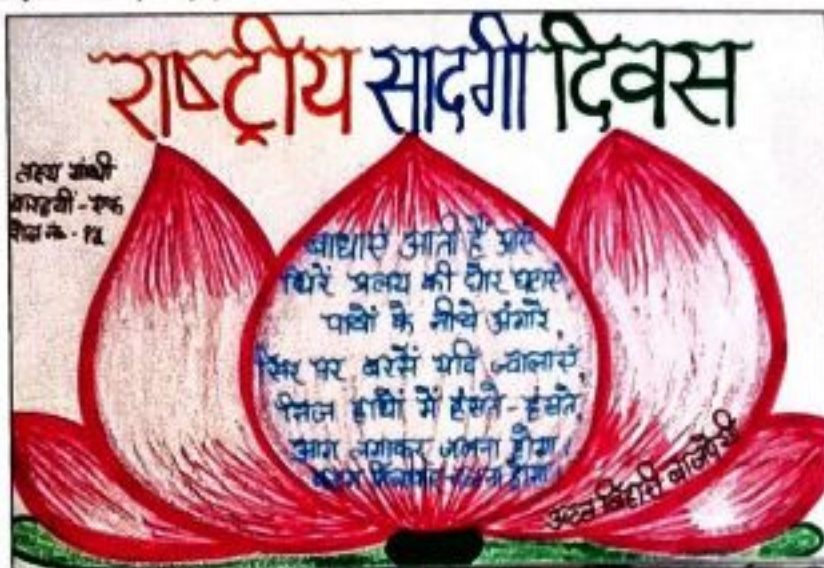 राष्ट्रीय सादगी दिवस
लक्ष्य
बारहवीं - एफ
बाधाएं आती हैं आएं
घिरें प्रलय की घोर घटाएं,
पावों के नीचे अंगारे,
सिर पर बरसें यदि ज्वालाएं,
निज हाथों में हंसते-हंसते,
आग लगाकर जलना होगा।
कदम मिलाकर चलना होगा।
अटल बिहारी वाजपेयी